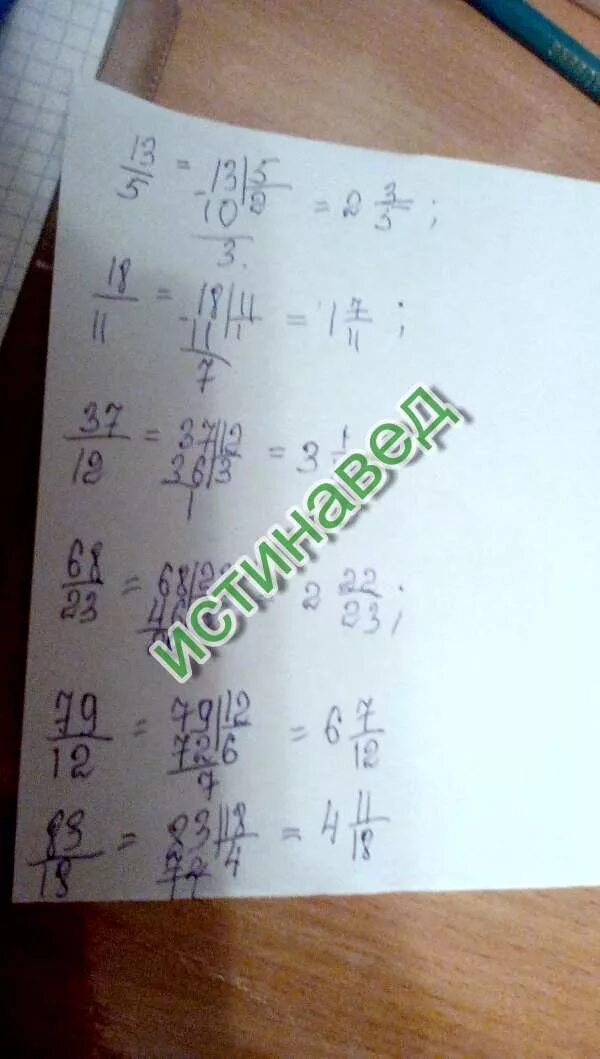 13/5 = -13|5 10|2 3 = 2 3/5 ;
18/11 = -18|11 11|1 7 = 1 7/11 ;
37/12 = 37|12 36|3 1 = 3 1
68/23 = 68|2 4 2 22/23 ;
79/12 = 79|12 72|6 7 = 6 7/12
83/18 = 83|18 4 = 4 11/18
истинавед